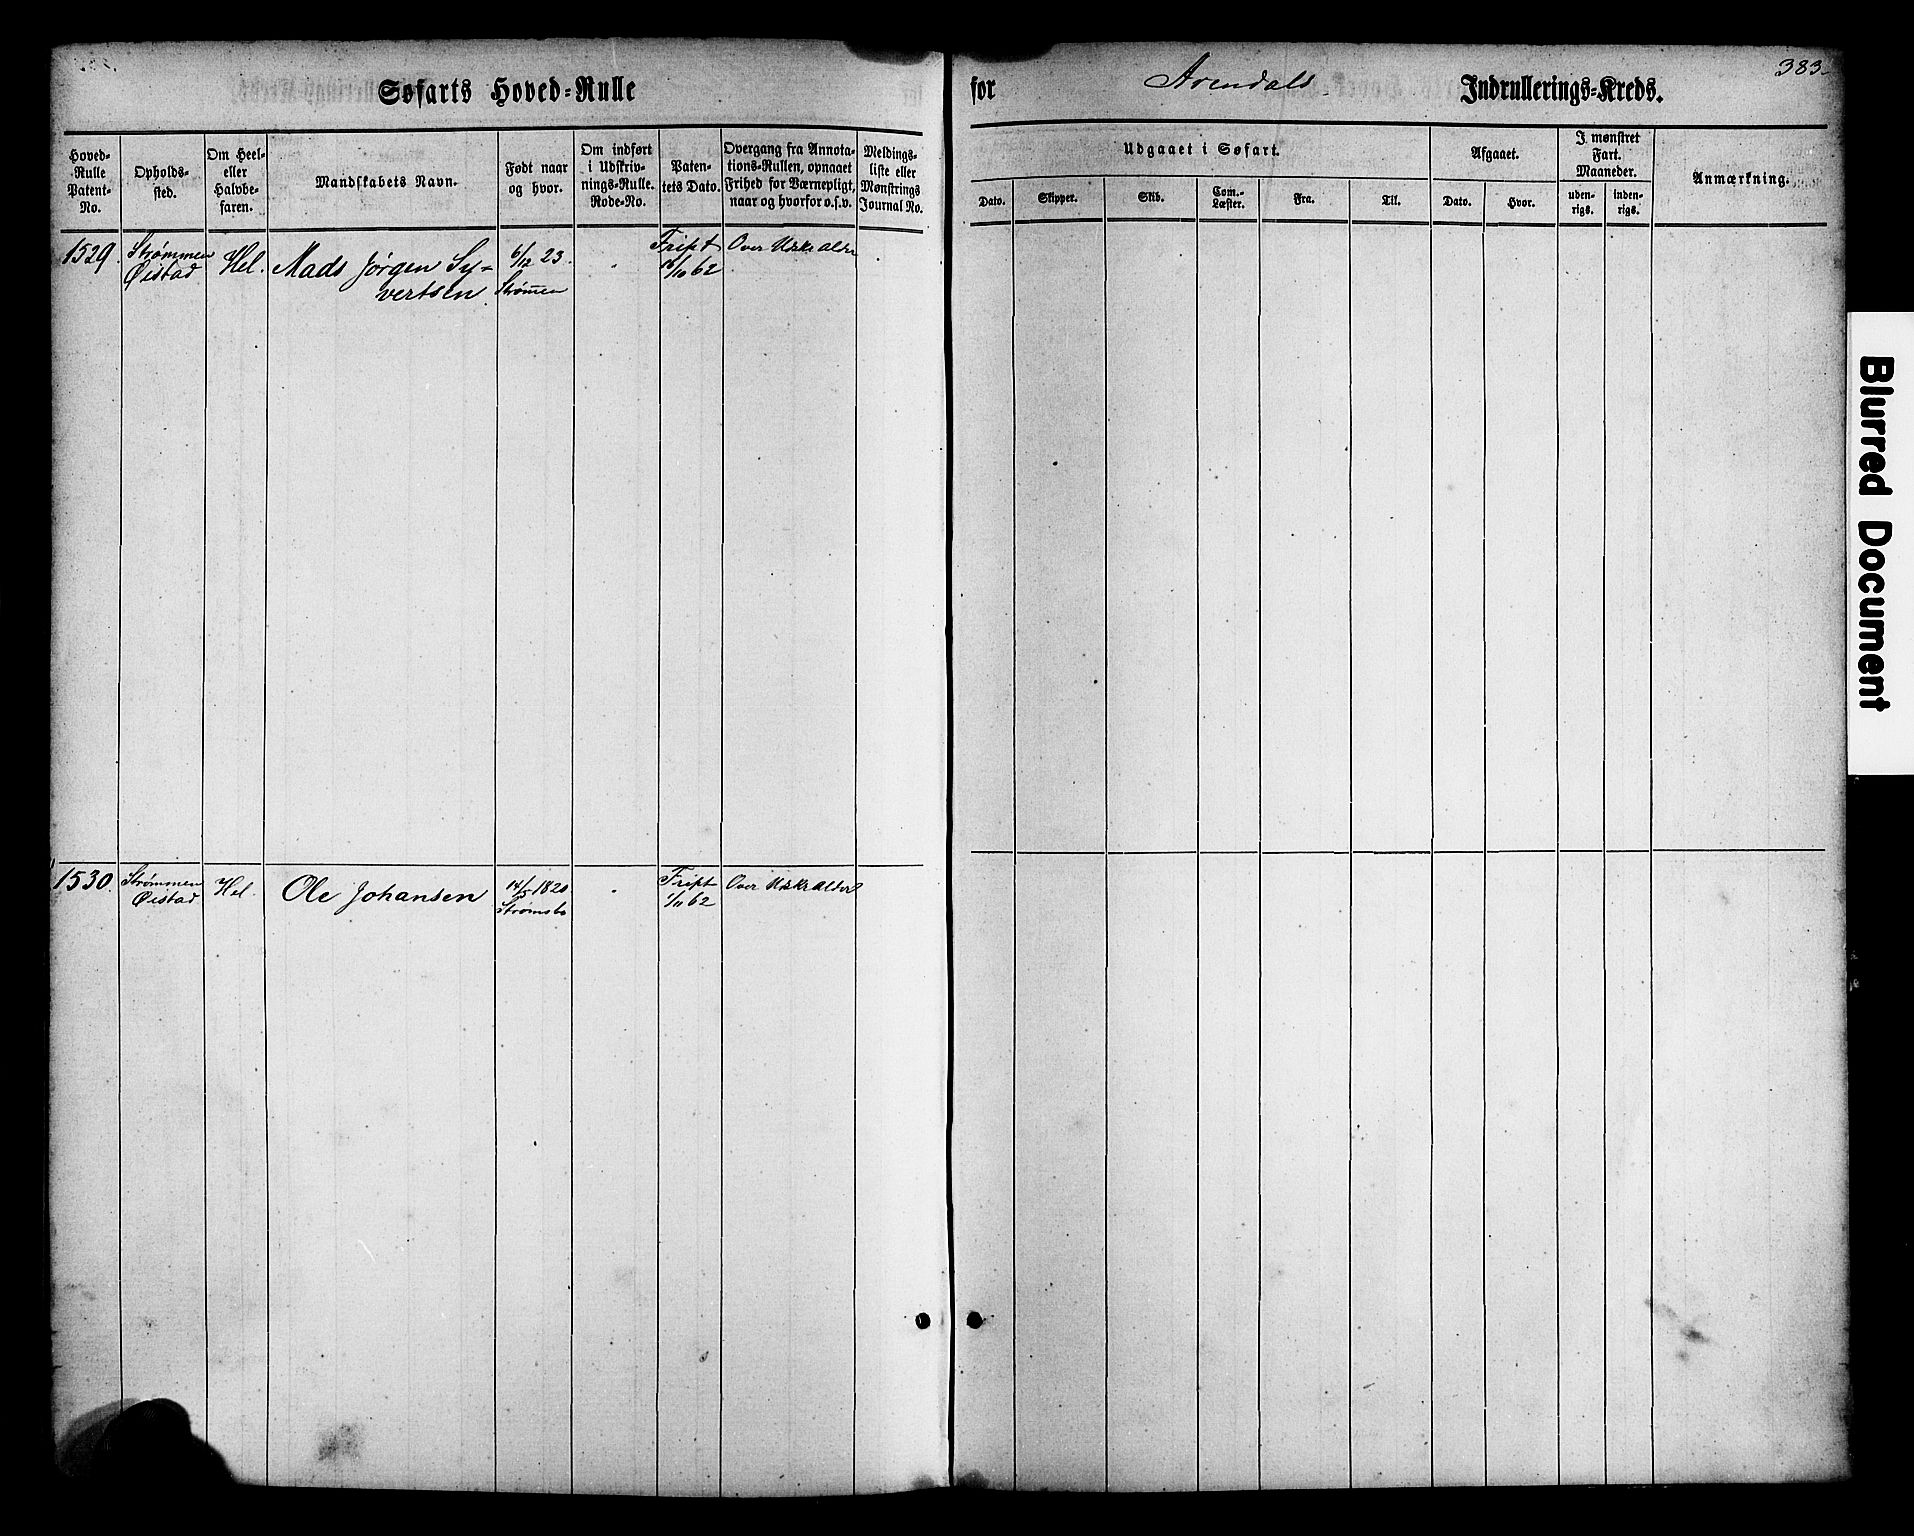 383.
Søfarts Hoved=Rulle for Arendals Indrullerings=Kreds.
Hoved=
Rulle
Patent=
No.
Opholds=
sted.
Om Heel=
eller
Halvbe=
faren.
Mandskabets Navn.
Født naar
og hvor.
Om indført
i Udskriv=
nings=Rulle.
Rode=No.
Paten=
tets Dato.
Overgang fra Annota=
tions=Rullen, opnaaet
Frihed for Værnepligt,
naar og hvorfor o.s.v.
Meldings=
liste eller
Mønstrings
Journal No.
Udgaaet i Søfart.
Dato.
Skipper.
Skib.
Com.=
Læster.
Fra.
Til.
Afgaaet.
Dato.
Hvor.
I mønstret
Fart.
Maaneder.
uden=
rigs.
inden=
rigs.
Anmærkning.
1529. Strømmen Hel. Mads Jørgen Sy= 6/12 23. Fript Over Udskr alder
Øistad vertsen. Strømen /10 62
1530. Strømmen Hel. Ole Johansen 14/5 1820 Fript Over Udskr alder
Øistad Strømsbo 1/11 62
Blurred Document